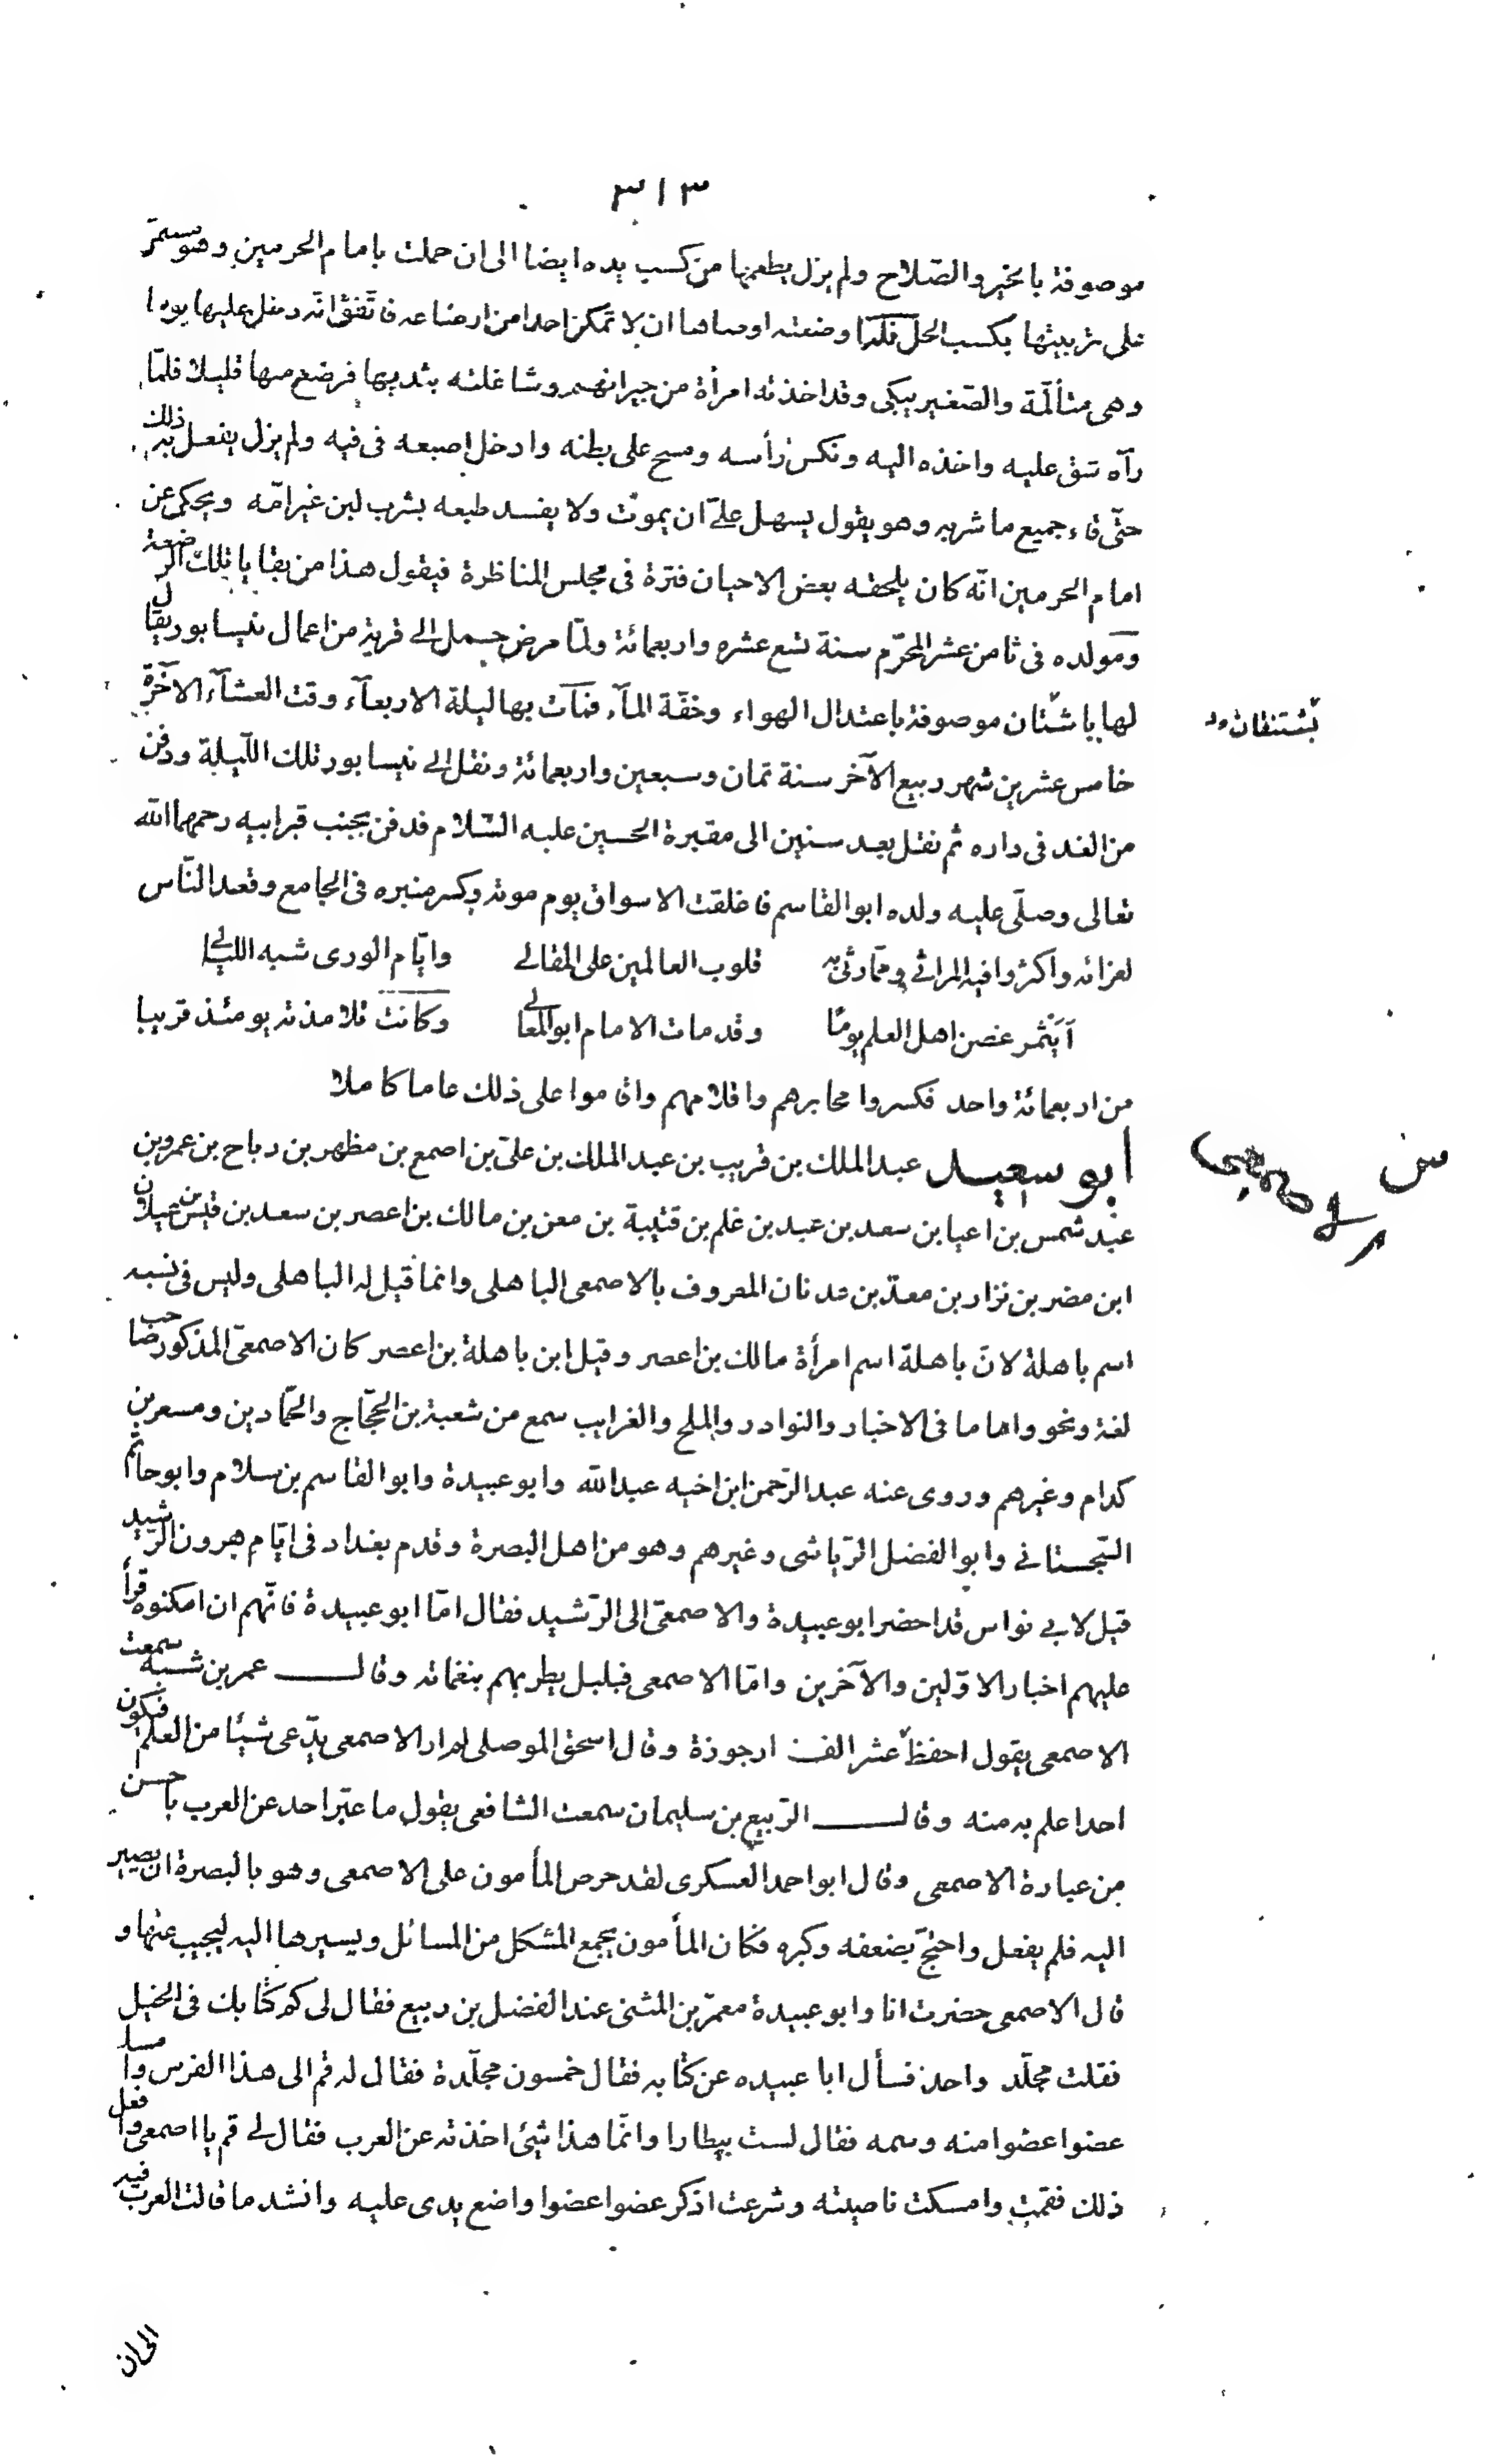 ٣١٣
موصوفة بالخير والصّلاح ولم يزل يطعمها من كسب يده ايضا الى ان حملت بامام الحرمين وهو مستمرّ
على تربيتها بكسب الحلّ فلمّا وضعته اوصاها ان لا تمكن احدا من ارضاعه فاتّفق انّه دخل عليها يوما
وهى متألّمة والصّغير يبكى وقد اخذته امرأة من جيرانهم وشاغلته بثديها فرضع منها قليلا فلمّا
رآه شقّ عليه واخذه اليه ونكس رأسه ومسح على بطنه وادخل اصبعه فى فيه ولم يزل يفعل به ذلك
حتّى قاء جميع ما شربه وهو يقول يسهل علىّ ان يموت ولا يفسد طبعه بشرب لبن غير امّه ويحكى عن
امام الحرمين انّه كان يلحقه بعض الاحيان فترة فى مجلس المناظرة فيقول هذا من بقايا تلك الرّضعة
ومولده فى ثامن عشر المحرّم سنة تسع عشره واربعمائة ولمّا مرض حمل الى قرية من اعمال نيسابور يقال
لها باشتّان موصوفة باعتدال الهواء وخفّة المآء فمات بها ليلة الاربعآء وقت العشآء الآخرة
بُشتنقان
خامس عشرين شهر ربيع الآخر سنة ثمان وسبعين واربعمائة ونقل الى نيسابور تلك اللّيلة ودفن
من الغد فى داره ثم نقل بعد سنين الى مقبرة الحسين عليه السّلام فدفن بجنب قبر ابيه رحمهما الله
تعالى وصلّى عليه ولده ابو القاسم فاغلقت الاسواق يوم موته وكسر منبره فى الجامع وقعد النّاس
لعزائه واكثروا فيه المراثى وممّا رثى به قلوب العالمين على المقالى وايّام الورى شبه الليالى
أيثمر غصن اهل العلم يومًا وقد مات الامام ابو المعالى وكانت تلامذته يومئذ قريبا
من اربعمائة واحد فكسروا محابرهم واقلامهم واقاموا على ذلك عاما كاملا
س الاصمعى
أبو سعيد عبد الملك بن قريب بن عبد الملك بن علىّ بن اصمع بن مظهر بن رباح بن عمرو بن
عبد شمس بن اعيا بن سعد بن عبد بن غلم بن قتيبة بن معن بن مالك بن اعصر بن سعد بن قيس بن عيلان
ابن مضر بن نزار بن معدّ بن عدنان المعروف بالاصمعى الباهلى وانما قيل له الباهلى وليس فى نسبه
اسم باهلة لانّ باهلة اسم امرأة مالك بن اعصر وقيل ابن باهلة بن اعصر كان الاصمعىّ المذكور صاحب
لغة ونحو واماما فى الاخبار والنوادر والملح والغرايب سمع من شعبة بن الحجّاج والحمّادين ومسعر بن
كدام وغيرهم وروى عنه عبد الرّحمن ابن اخيه عبد الله وابو عبيدة وابو القاسم بن سلام وابو حاتم
السّجستانى وابو الفضل الرّياشى وغيرهم وهو من اهل البصرة وقدم بغداد فى ايّام هرون الرّشيد
قيل لابى نواس قد احضر ابو عبيدة والاصمعىّ الى الرّشيد فقال امّا ابو عبيدة فانّهم ان امكنوه قرأ
عليهم اخبار الاوّلين والآخرين وامّا الاصمعى فبلبل يطربهم بنغماته وقال عمر بن شبه سمعت
الاصمعى يقول احفظ عشر الف ارجوزة وقال اسحق الموصلى لم ار الاصمعى يدّعى شيئا من العلم فيكون
احد اعلم به منه وقال الرّبيع بن سليمان سمعت الشافعى يقول ما عبّر احد عن العرب باحسن
من عبارة الاصمعى وقال ابو احمد العسكرى لقد حرص المأمون على الاصمعى وهو بالبصرة ان يصير
اليه فلم يفعل واحتجّ بضعفه وكبره فكان المأمون يجمع المشكل من المسائل ويسيرها اليه ليجيب عنها و
قال الاصمعى حضرت انا وابو عبيدة معمر بن المثنى عند الفضل بن ربيع فقال لى كم كتابك فى الخيل
فقلت مجلّد واحد فسأل ابا عبيده عن كتابه فقال خمسون مجلّدة فقال له قم الى هذا الفرس وامسك
عضوا عضوا منه وسمه فقال لست بيطارا وانّما هذا شئ اخذته عن العرب فقال لى قم يا اصمعى وافعل
ذلك فقمت وامسكت ناصيته وشرعت اذكر عضوا عضوا واضع يدى عليه وانشد ما قالت العرب فيه
الى ان